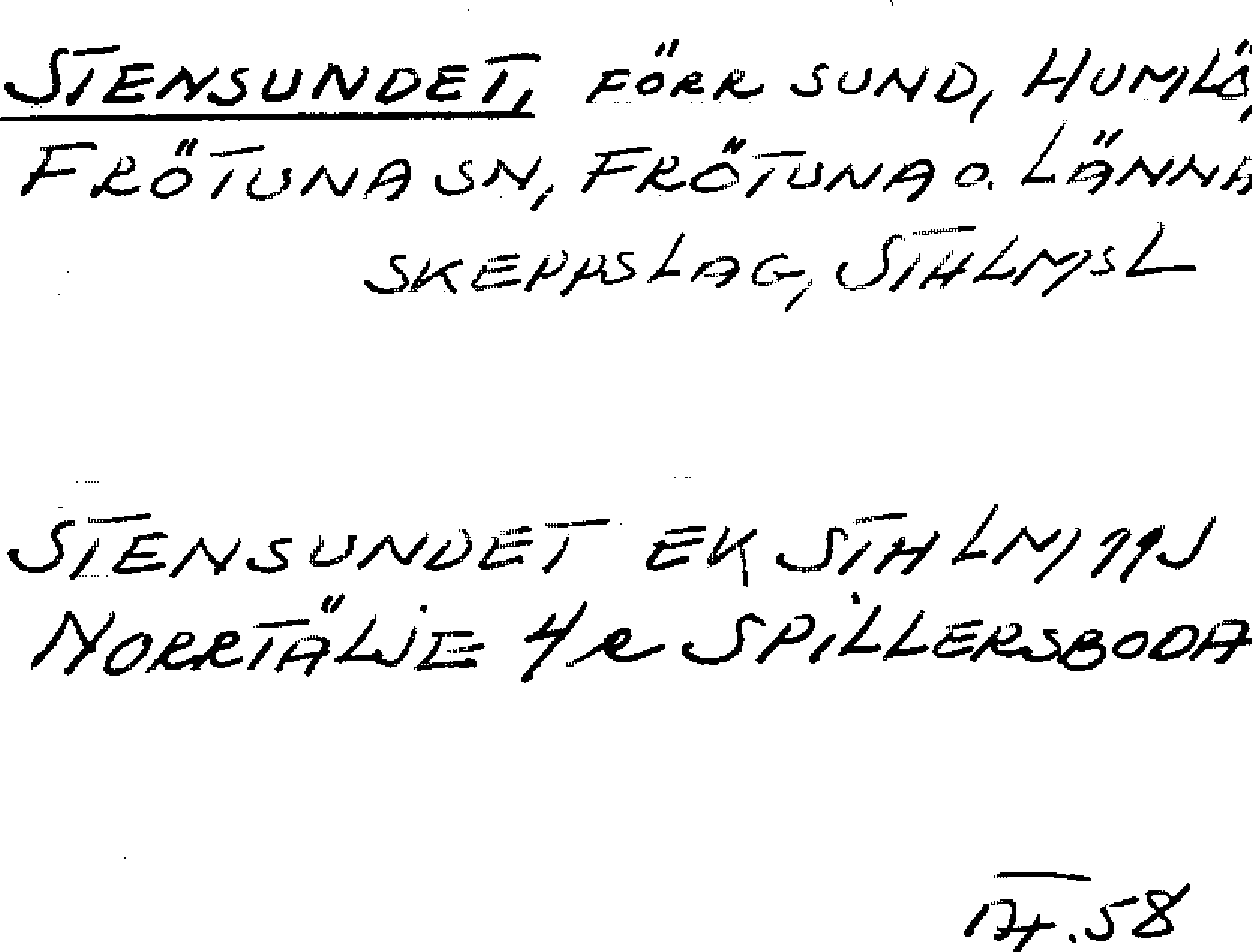 STENSUNDET, FÖRR SUND, HUMLÖ,
FRÖTUNA SN, FRÖTUNA O. LÄNNA
SKEPPSLAG, STHLMSL
STENSUNDET EK STHLM
NORRTÄLJE 4 SPILLERSBODA
.58